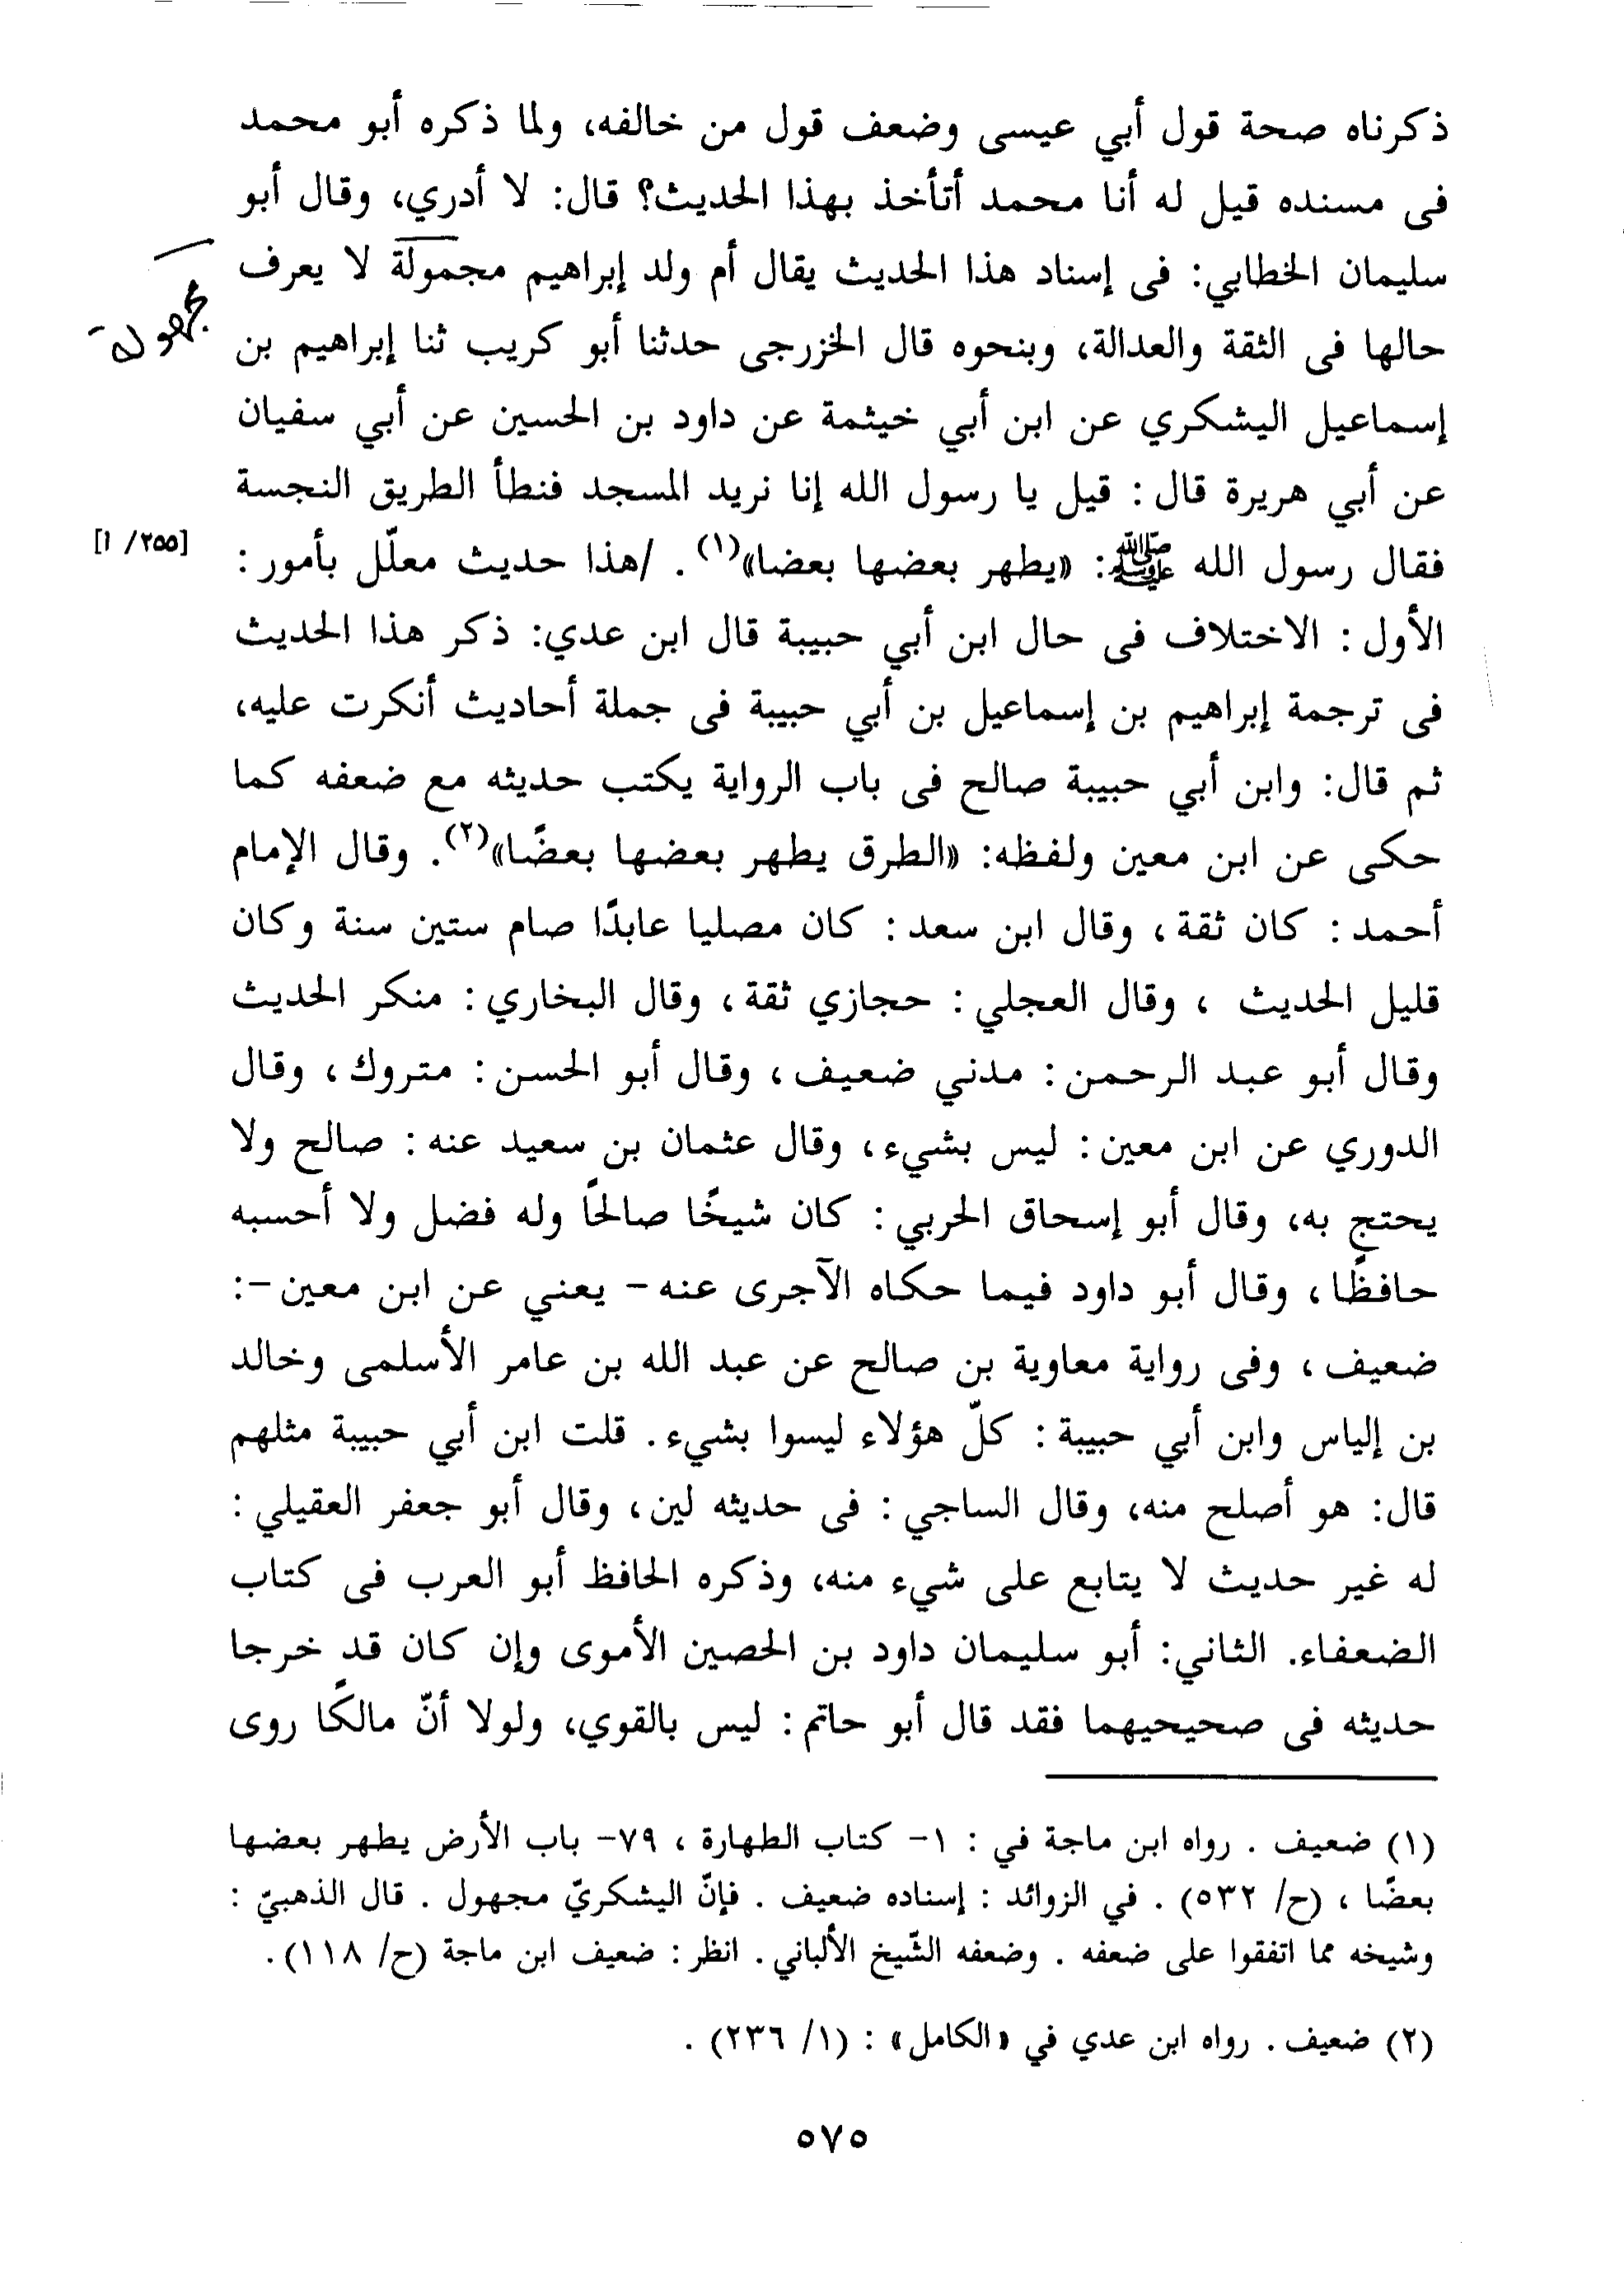 ذكرناه صحة قول أبي عيسى وضعف قول من خالفه، ولما ذكره أبو محمد
فى مسنده قيل له أنا محمد أتأخذ بهذا الحديث؟ قال: لا أدري، وقال أبو
سليمان الخطابي: فى إسناد هذا الحديث يقال أم ولد إبراهيم مجمولة لا يعرف
مجهولة
حالها فى الثقة والعدالة، وبنحوه قال الخزرجى حدثنا أبو كريب ثنا إبراهيم بن
إسماعيل اليشكري عن ابن أبي خيثمة عن داود بن الحسين عن أبي سفيان
عن أبي هريرة قال: قيل يا رسول الله إنا نريد المسجد فنطأ الطريق النجسة
فقال رسول الله ﷺ: «يطهر بعضها بعضا»(١). /هذا حديث معلّل بأمور:
[٢٥٥/ ا]
الأول: الاختلاف فى حال ابن أبي حبيبة قال ابن عدي: ذكر هذا الحديث
فى ترجمة إبراهيم بن إسماعيل بن أبي حبيبة فى جملة أحاديث أنكرت عليه،
ثم قال: وابن أبي حبيبة صالح فى باب الرواية يكتب حديثه مع ضعفه كما
حكى عن ابن معين ولفظه: «الطرق يطهر بعضها بعضًا»(٢). وقال الإمام
أحمد: كان ثقة، وقال ابن سعد: كان مصليا عابدًا صام ستين سنة وكان
قليل الحديث ، وقال العجلي: حجازي ثقة، وقال البخاري: منكر الحديث
وقال أبو عبد الرحمن: مدني ضعيف، وقال أبو الحسن: متروك، وقال
الدوري عن ابن معين: ليس بشيء، وقال عثمان بن سعيد عنه: صالح ولا
يحتج به، وقال أبو إسحاق الحربي: كان شيخًا صالحًا وله فضل ولا أحسبه
حافظًا، وقال أبو داود فيما حكاه الآجرى عنه- يعني عن ابن معين-:
ضعيف، وفى رواية معاوية بن صالح عن عبد الله بن عامر الأسلمى وخالد
بن إلياس وابن أبي حبيبة: كلّ هؤلاء ليسوا بشيء. قلت ابن أبي حبيبة مثلهم
قال: هو أصلح منه، وقال الساجي: فى حديثه لين، وقال أبو جعفر العقيلي:
له غير حديث لا يتابع على شيء منه، وذكره الحافظ أبو العرب فى كتاب
الضعفاء. الثاني: أبو سليمان داود بن الحصين الأموى وإن كان قد خرجا
حديثه فى صحيحيهما فقد قال أبو حاتم: ليس بالقوي، ولولا أنّ مالكًا روى
(١) ضعيف . رواه ابن ماجة في : ١- كتاب الطهارة ، ٧٩- باب الأرض يطهر بعضها
بعضًا ، (ح/ ٥٣٢) . في الزوائد : إسناده ضعيف . فإنّ اليشكريّ مجهول . قال الذهبيّ :
وشيخه مما اتفقوا على ضعفه . وضعفه الشّيخ الألباني. انظر: ضعيف ابن ماجة (ح/ ١١٨).
(٢) ضعيف. رواه ابن عدي في «الكامل» : (١/ ٢٣٦) .
٥٧٥